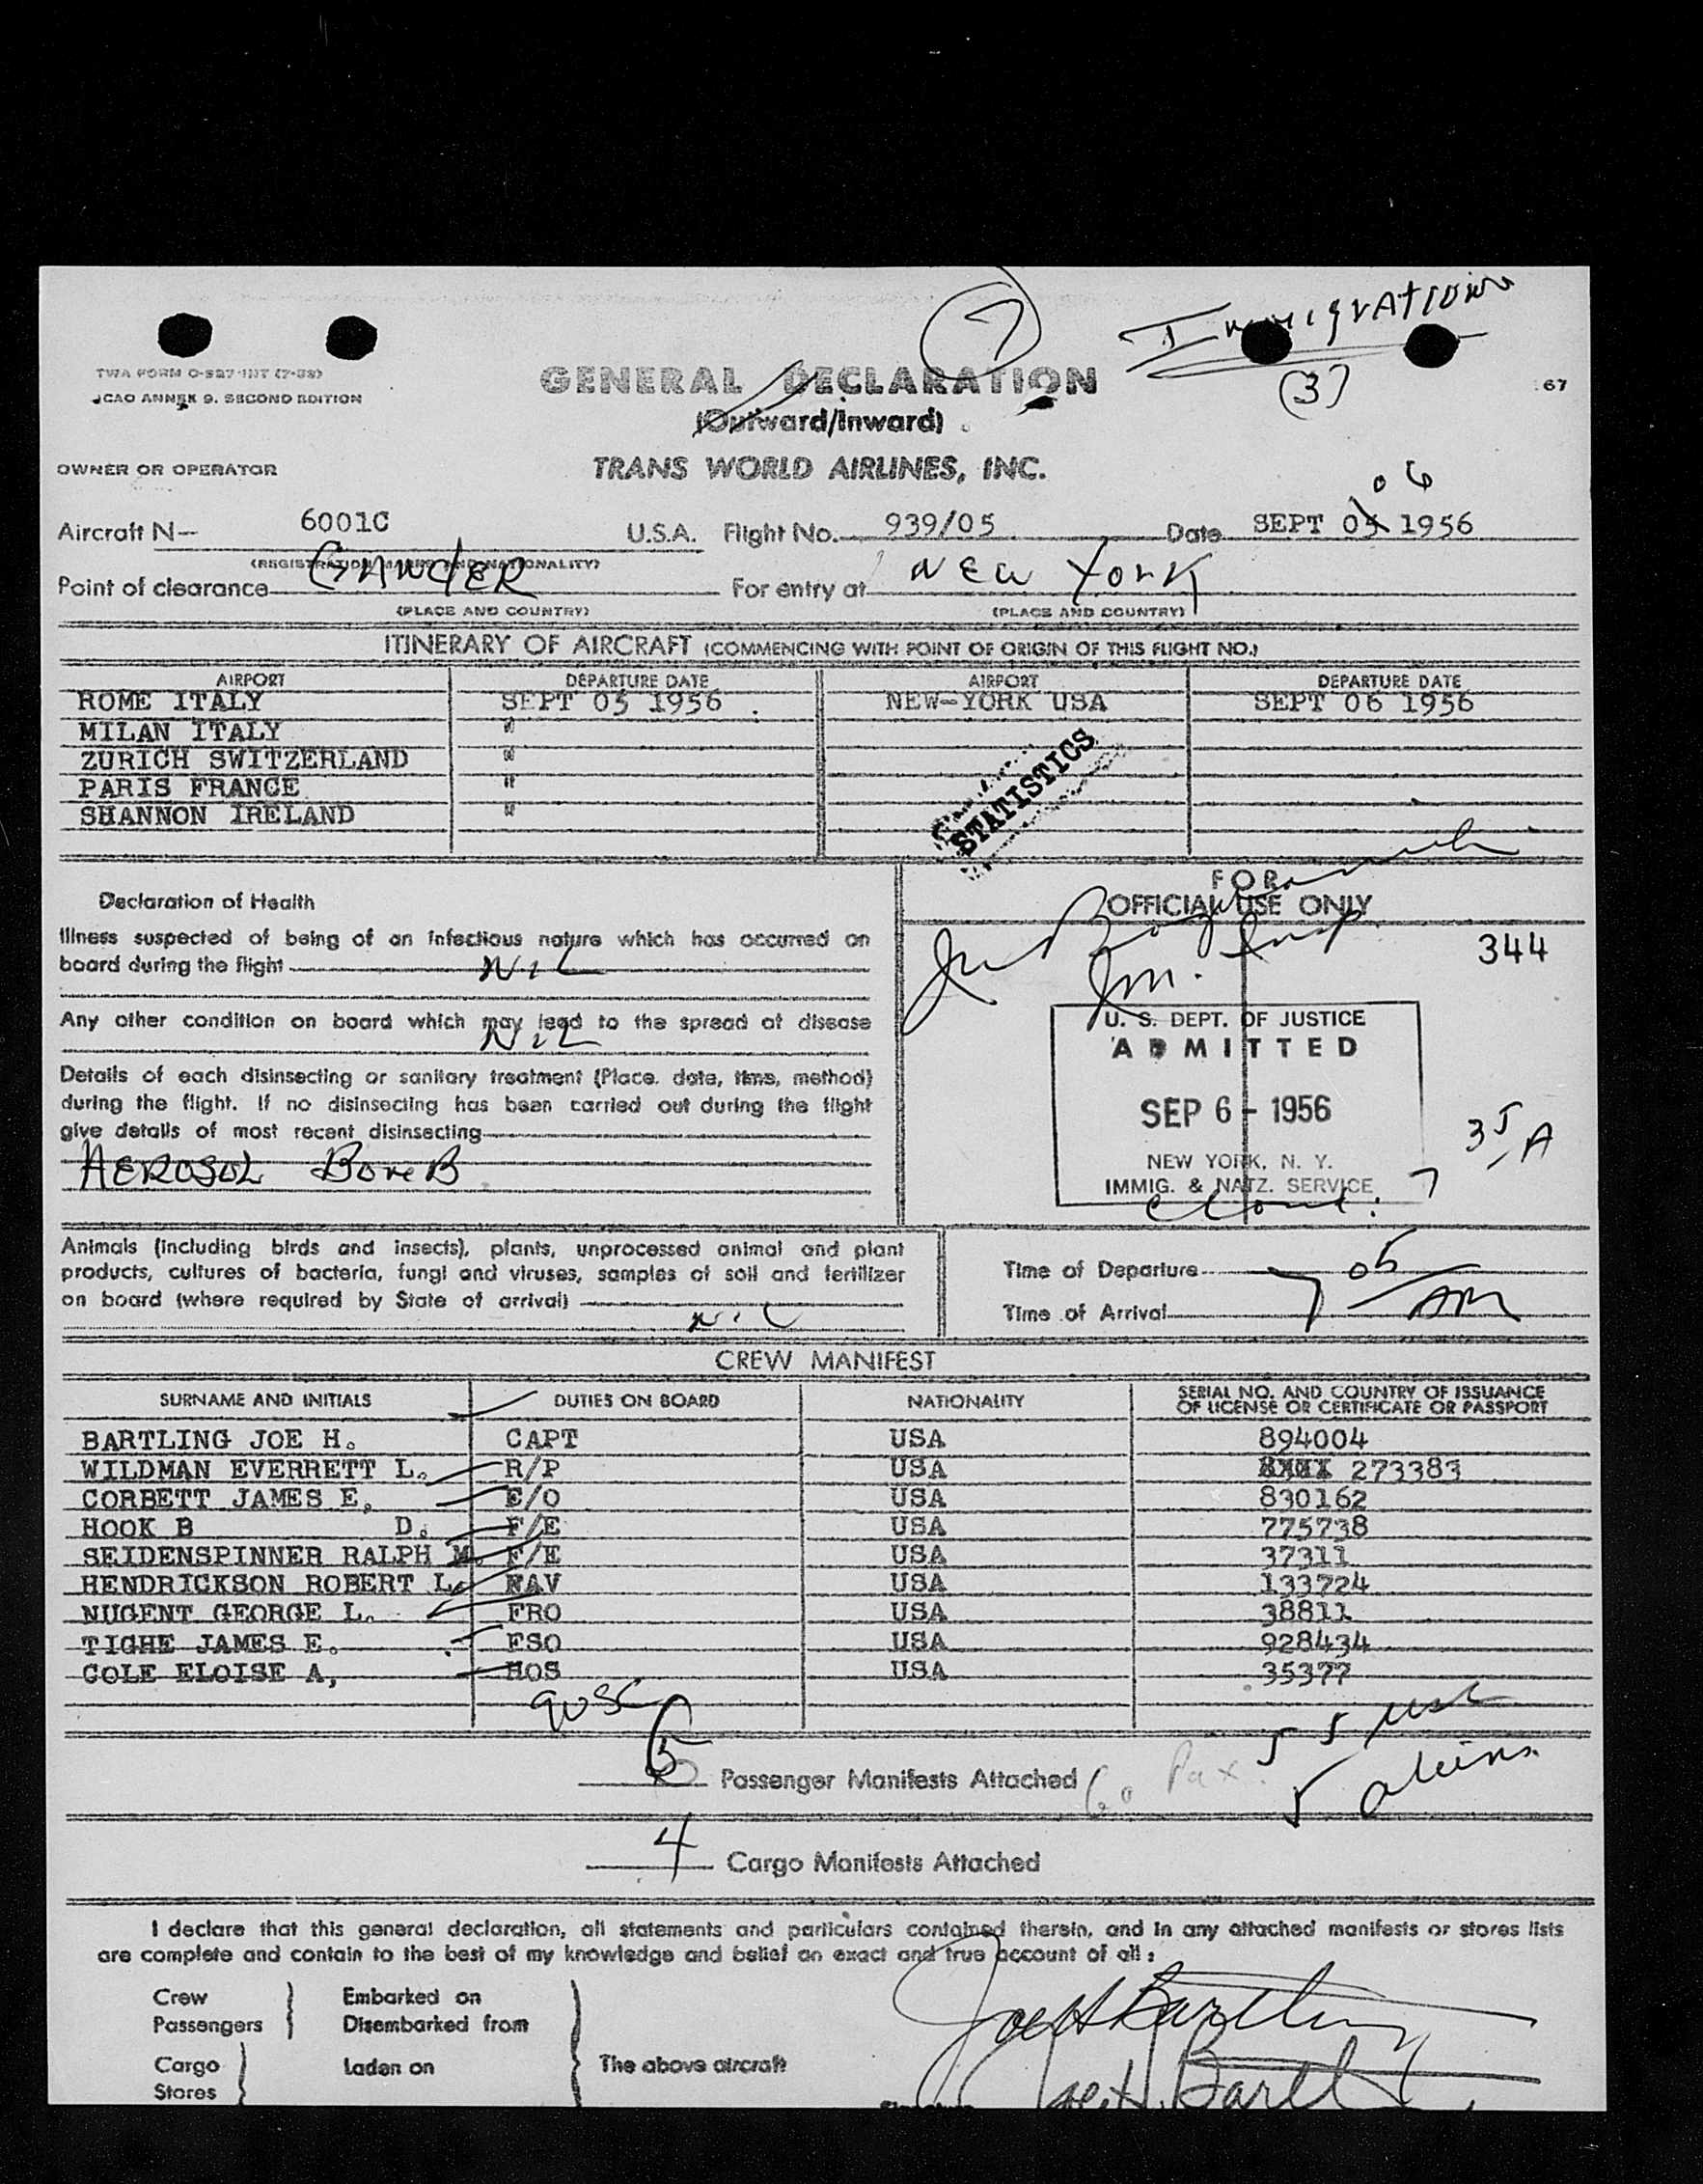 7
Immigration
(3)
TWA FORM O-527-INT
ICAO ANNEX 9. SECOND EDITION
GENERAL DECLARATION
67
(Outward/Inward)
OWNER OR OPERATOR
TRANS WORLD AIRLINES, INC.
06
Aircraft N— 6001C U.S.A. Flight No. 939/05 Date SEPT 05 1956
(REGISTRATION MARKS AND NATIONALITY)
Point of clearance GANDER For entry at NEW YORK
(PLACE AND COUNTRY) (PLACE AND COUNTRY)
ITINERARY OF AIRCRAFT (COMMENCING WITH POINT OF ORIGIN OF THIS FLIGHT NO.)
AIRPORT DEPARTURE DATE AIRPORT DEPARTURE DATE
ROME ITALY SEPT 05 1956 NEW-YORK USA SEPT 06 1956
MILAN ITALY "
ZURICH SWITZERLAND "
PARIS FRANCE "
SHANNON IRELAND "
STATISTICS
FOR
OFFICIAL USE ONLY
Declaration of Health
Illness suspected of being of an infectious nature which has occurred on
board during the flight NIL
344
Any other condition on board which may lead to the spread of disease
NIL
Details of each disinsecting or sanitary treatment (Place, date, time, method)
during the flight. If no disinsecting has been carried out during the flight
give details of most recent disinsecting
AEROSOL BOMB
Imm. Insp.
U. S. DEPT. OF JUSTICE
ADMITTED
SEP 6 - 1956
NEW YORK, N. Y.
IMMIG. & NATZ. SERVICE
7 35 A
Animals (including birds and insects), plants, unprocessed animal and plant
products, cultures of bacteria, fungi and viruses, samples of soil and fertilizer
on board (where required by State of arrival)
NIL
Time of Departure
Time of Arrival 7 05 AM
CREW MANIFEST
SURNAME AND INITIALS DUTIES ON BOARD NATIONALITY SERIAL NO. AND COUNTRY OF ISSUANCE
OF LICENSE OR CERTIFICATE OR PASSPORT
BARTLING JOE H. CAPT USA 894004
WILDMAN EVERRETT L. R/P USA 273383
CORBETT JAMES E, F/O USA 830162
HOOK B D. F/E USA 775738
SEIDENSPINNER RALPH M. F/E USA 37311
HENDRICKSON ROBERT L. NAV USA 133724
NUGENT GEORGE L. FRO USA 38811
TIGHE JAMES E. FSO USA 928434
COLE ELOISE A, HOS USA 35377
9 USC
55 USC
Passenger Manifests Attached 60 Pax.
5 aliens
4 Cargo Manifests Attached
I declare that this general declaration, all statements and particulars contained therein, and in any attached manifests or stores lists
are complete and contain to the best of my knowledge and belief an exact and true account of all :
Crew Embarked on
Passengers Disembarked from
Cargo Laden on The above aircraft
Stores
Joe H Bartling
Joe H. Bartling